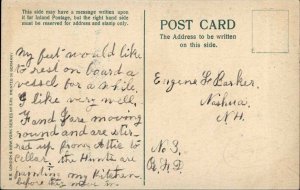 This side may have a message written upon
it for Inland Postage, but the right hand side
must be reserved for address and stamp only.
POST CARD
The Address to be written
on this side.
My feet would like
to rest on board a
vessel for a while.
I like very well,
and are moving
round and are stir-
red up from Attic to
Cellar. the
my Kitchen
before they
Eugene L. Barker.
Nashua,
N.H.
No 3,
R.F.D.